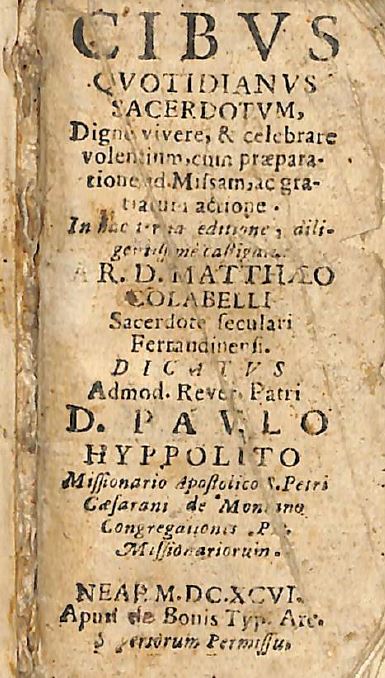 CIBVS
QVOTIDIANVS
SACERDOTVM,
Digne vivere, & celebrare
volentium, cum præpara-
tione ad Missam, ac gra-
tiarum actione.
In hac editione, dili-
A R. D. MATTHÆO
COLABELLI
Sacerdote seculari
Ferrandinensi.
DICATVS
Admod. Rever. Patri
D. PAVLO
HYPPOLITO
Missionario Apostolico S. Petri
Cæsarani de
Congregationis
Missionariorum.
NEAP. M.DC.XCVI.
Apud de Bonis Typ. Arc.
Permissu.